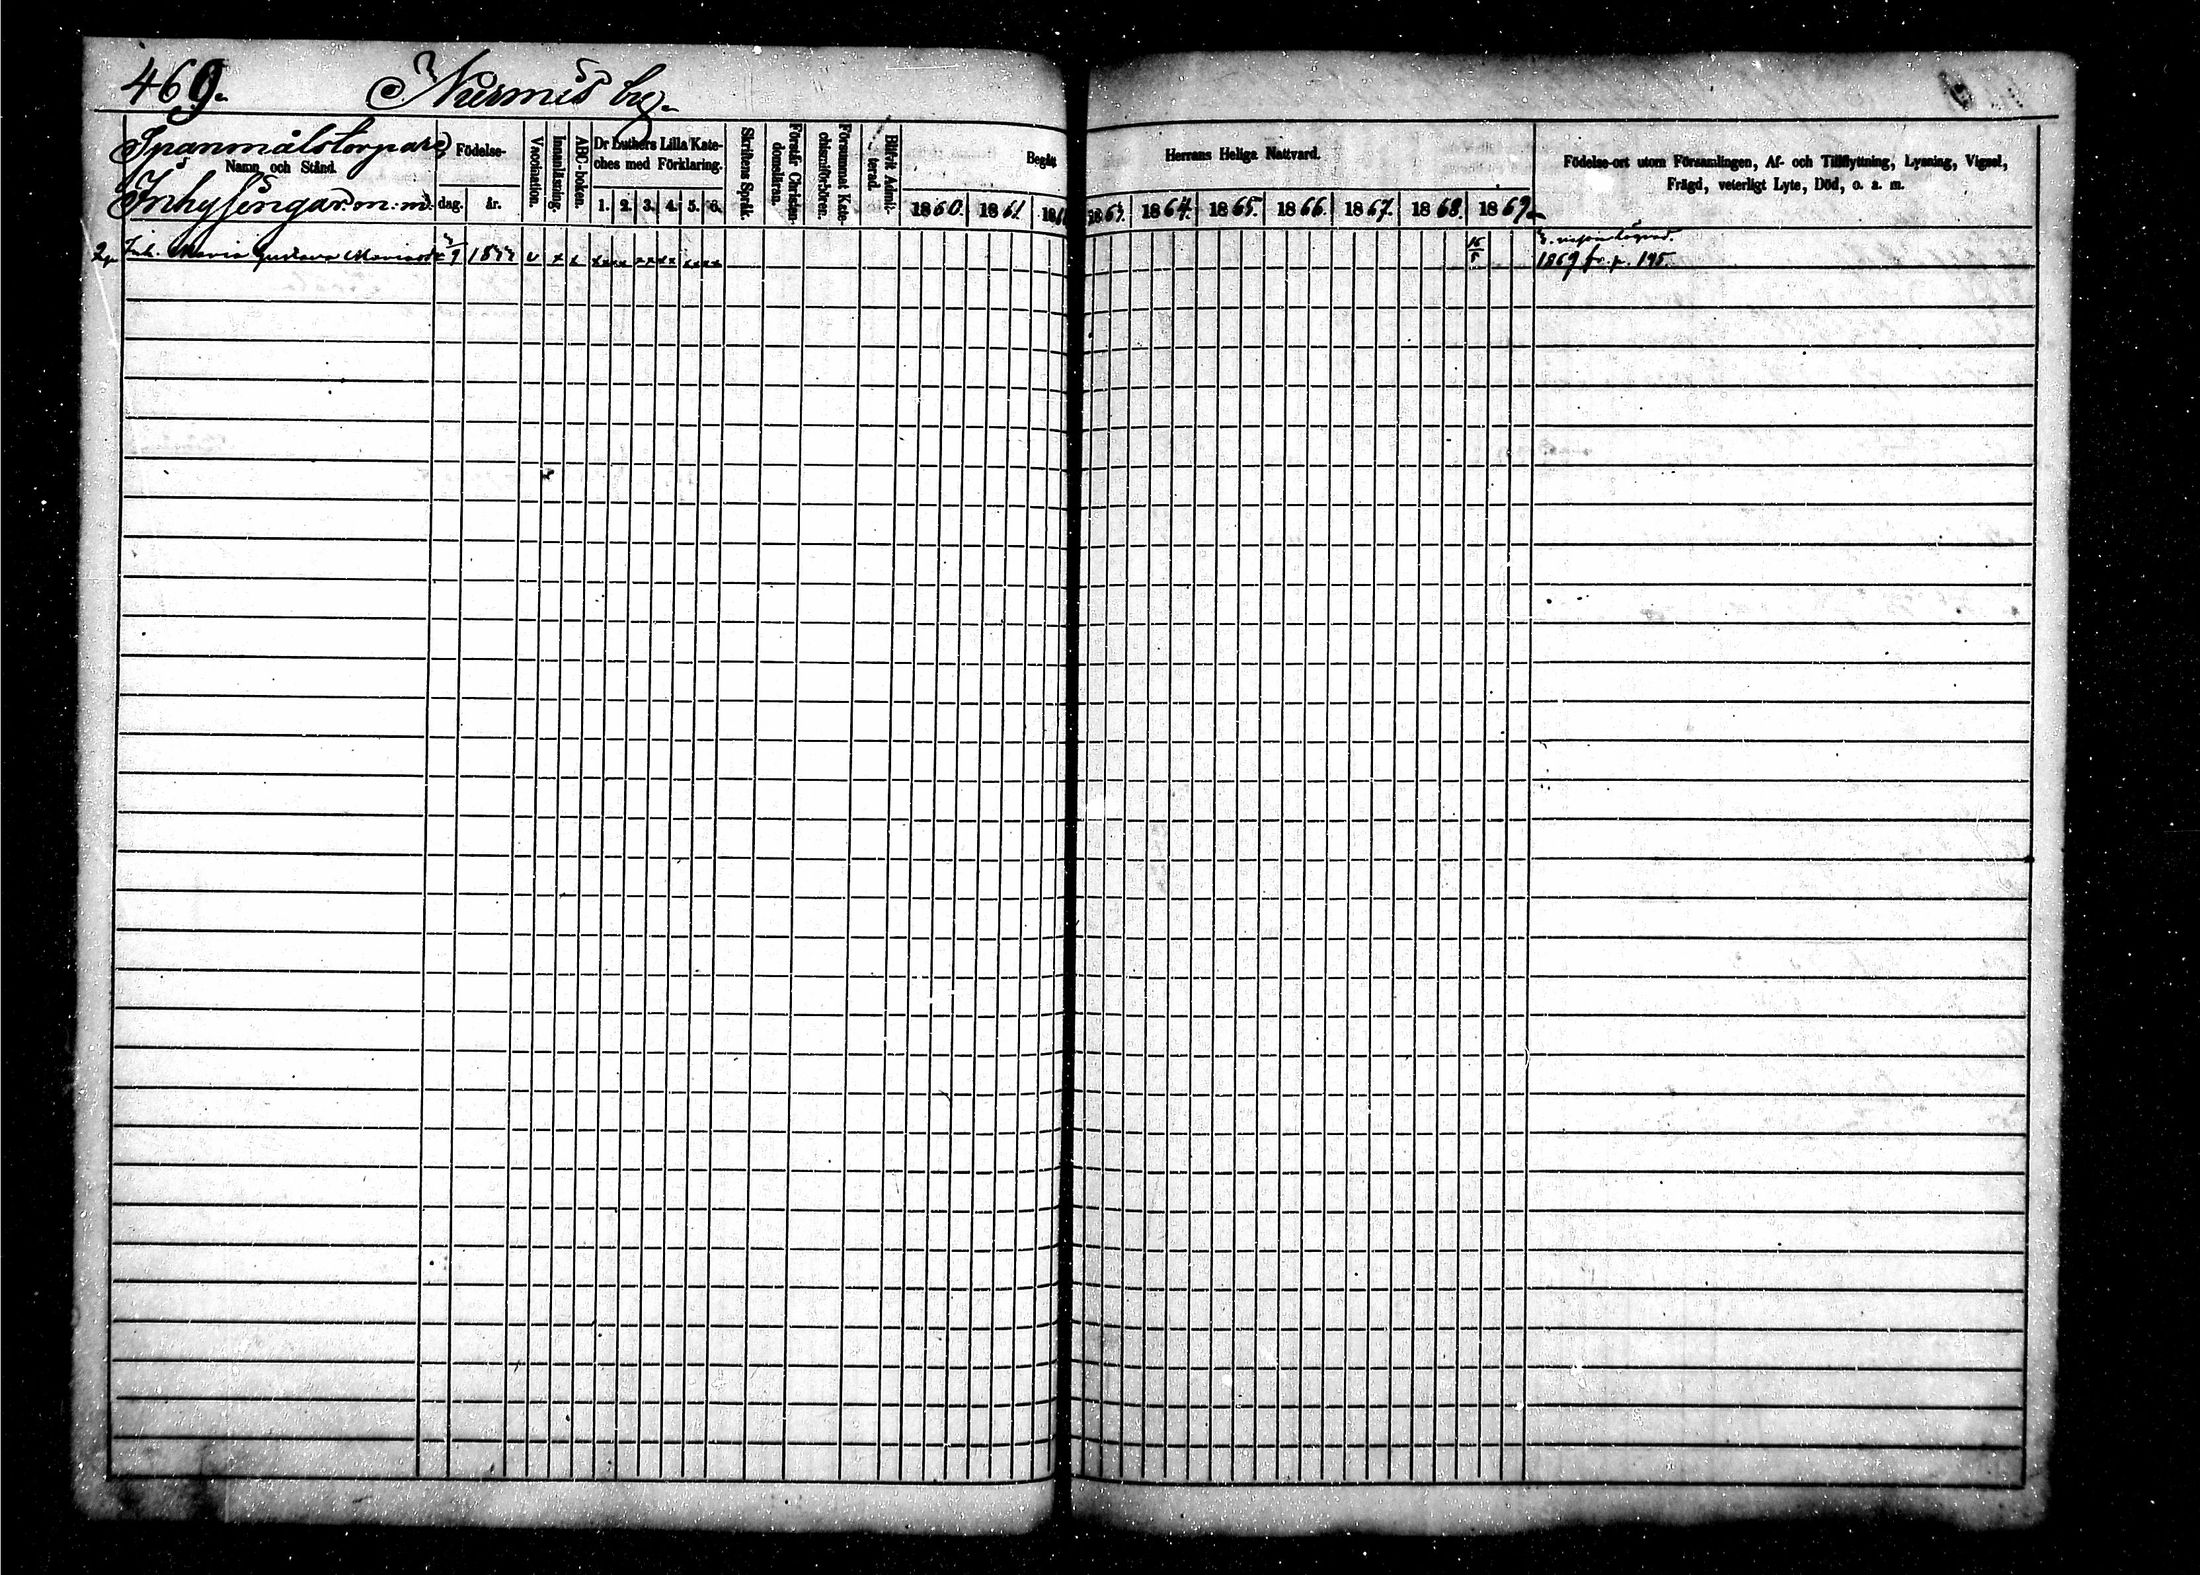 469.
Nurmis by.
Spanmålstorpare,
Namn och Stånd.
Inhysingar m. m.
Födelse-
dag.
år.
Vaccination.
Innanläsning.
ABC-boken.
Dr Luthers Lilla Kate-
ches med Förklaring.
1. 2. 3. 4. 5. 6.
Skriftens Språk.
Förstår Christen-
domsläran.
Försummat Kate-
chismiförhören.
Blifvit Admit-
terad.
Begått
Herrans Heliga Nattvard.
1860. 1861. 186
1863. 1864. 1865. 1866. 1867. 1868. 1869.
Födelse-ort utom Församlingen, Af- och Tillflyttning, Lysning, Vigsel,
Frägd, veterligt Lyte, Död, o. s. m.
Inh. Maria Gustava
1869 fr. p. 195.